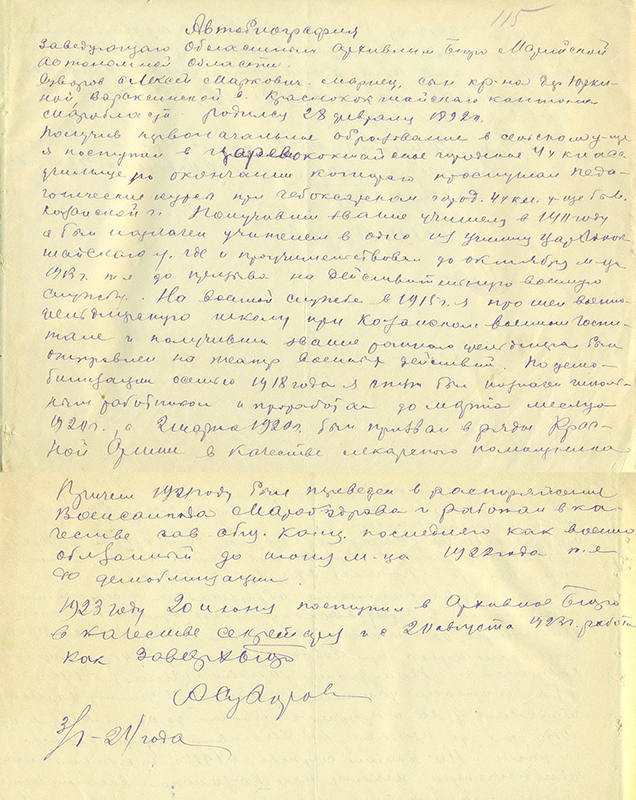 115
Автобиография
Заведующаго Областным Архивным Бюро Марийской
Автономной области.
Суворов Алексей Маркович. мариец, сын кр-на д.
Вараксинской в. Краснококшайского кантона
Маробласти родился 28 февраля 1892 г.
Получив первоначальное образование в сельском уч-ще
я поступил в Царевококшайское городское 4х класс.
училище, по окончании которого прослушал педа-
гогические курсы при Чебоксарском город. 4х кл. уч-ще быв.
Казанской г. Получивши звание учителя в 1911 году
я был назначен учителем в одно из училищ Царевокок-
шайского у. где и проучительствовал до октября м-ца
1913 г. т.е до призыва на действительную военную
службу. На военной службе в 1915 г. я прошел военно-
фельдшерскую школу при Казанском военном госпи-
тале и получивши звание ротного фельдшера был
отправлен на театр военных действий. По демо-
билизации осенью 1918 года я был назначен школь-
ным работником и проработал до марта месяца
1920 г., с 2 марта 1920 г. был призван в ряды Крас-
ной Армии в качестве лекарского помощника
Причем 1921 году был переведен в распоряжение
Маробздрава и работал в ка-
честве зав. общ. канц. последнего как военно
обязанный до июня м-ца 1922 года т.е
до демобилизации.
1923 году 20 июня поступил в Архивное Бюро
в качестве секретаря и с 20 августа 1923 г. работаю
как Завархбюро
АСуворов
3/ - 24 года